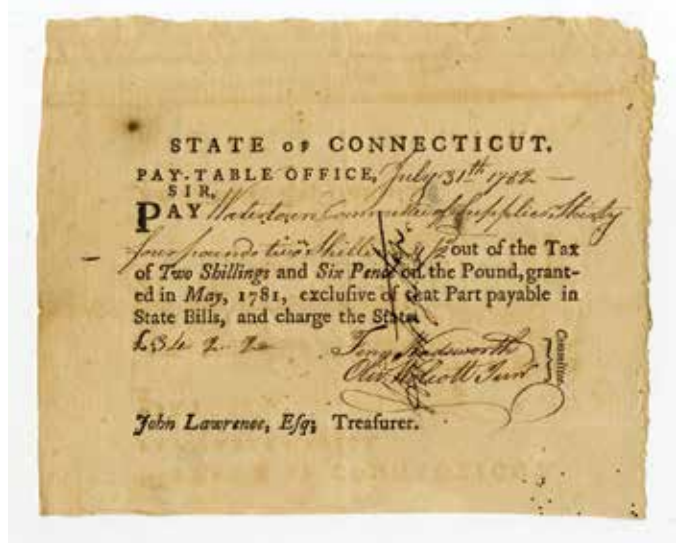 STATE OF CONNECTICUT.
PAY-TABLE OFFICE, July 31th 1782
SIR,
PAY Watertown Committee of Supplies Thirty
four pounds two Shillings out of the Tax
of Two Shillings and Six Pence on the Pound, grant-
ed in May, 1781, exclusive of that Part payable in
State Bills, and charge the State
£34 2
Feny Wadsworth
Olivr Wolcott Junr
Committee.
John Lawrence, Esq; Treasurer.